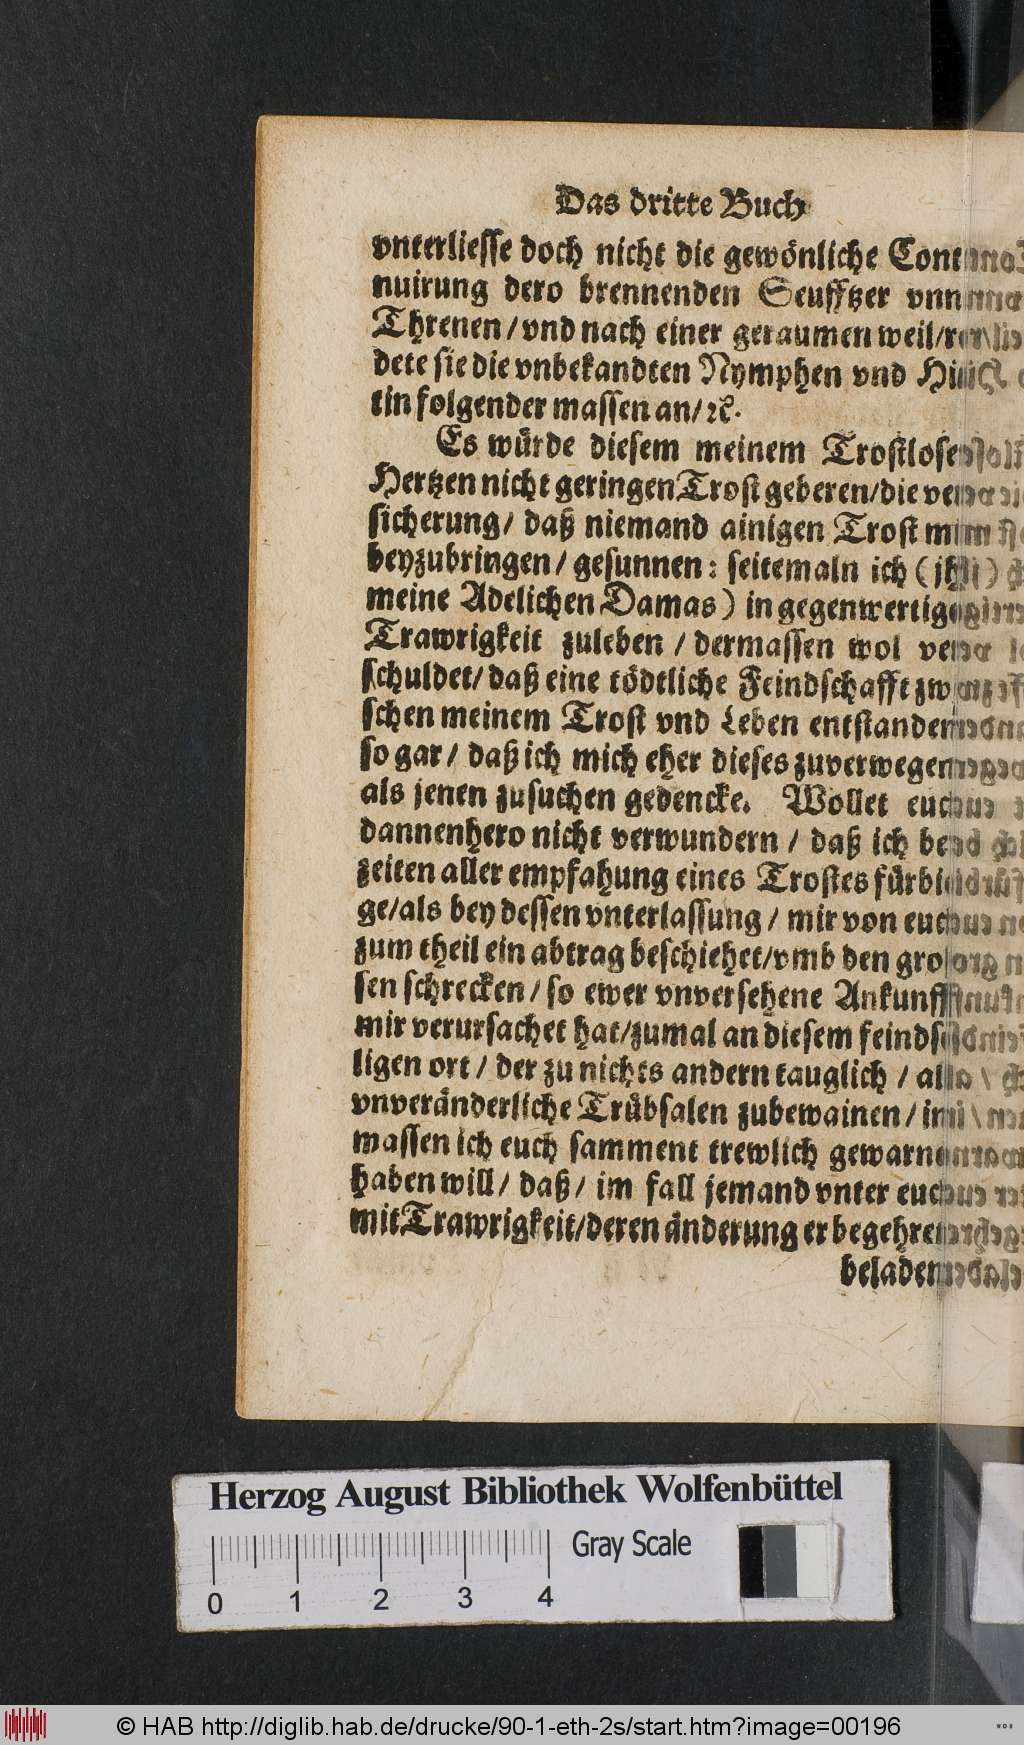 Das dritte Buch
vnterliesse doch nicht die gewönliche Conti
nuirung dero brennenden Seufftzer vnn
Threnen / vnd nach einer geraumen weil /
dete sie die vnbekandten Nymphen vnd
tin folgender massen an / ꝛc.
Es würde diesem meinem Trostlosen
Hertzen nicht geringen Trost geberen / die ver
sicherung / daß niemand ainigen Trost mir
beyzubringen / gesunnen: seitemaln ich ( jhr
meine Adelichen Damas ) in gegenwertiger
Trawrigkeit zuleben / dermassen wol ver
schuldet / daß eine tödtliche Feindschafft zwi
schen meinem Trost vnd Leben entstanden
so gar / daß ich mich eher dieses zuverwegen
als jenen zusuchen gedencke. Wollet euch
dannenhero nicht verwundern / daß ich bey
zeiten aller empfahung eines Trostes fürbie
ge / als bey dessen vnterlassung / mir von euch
zum theil ein abtrag beschiehet / vmb den gros
sen schrecken / so ewer vnversehene Ankunfft
mir verursachet hat / zumal an diesem feindse
ligen ort / der zu nichts andern tauglich / als
vnveränderliche Trübsalen zubewainen / in
massen ich euch samment trewlich gewarnet
haben will / daß / im fall jemand vnter euch
mit Trawrigkeit / deren änderung er begehret
beladen
Herzog August Bibliothek Wolfenbüttel
Gray Scale
0 1 2 3 4
© HAB http://diglib.hab.de/drucke/90-1-eth-2s/start.htm?image=00196